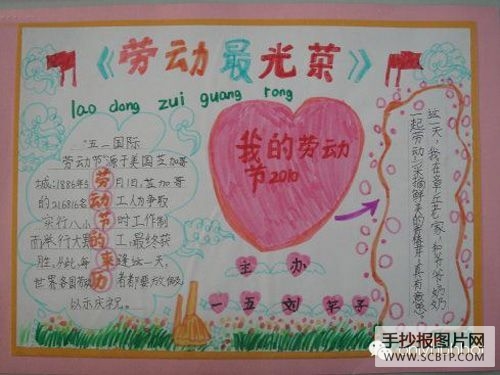 《劳动最光荣》
lao dong zui guang rong
"五一国际
劳动节"源于美国芝加哥
城,1886年5月1日,芝加哥
的21686名工人为争取
实行八小时工作制
而举行大罢工,最终获
胜,从此,每逢这一天,
世界各国劳动者都要放假
以示庆祝。
劳动节的来历
我的劳动
节2010
主办
一五刘
这一天,我在章丘老家,和爷爷奶奶
一起劳动,采摘鲜
手抄报图片网
WWW.SCBTP.COM